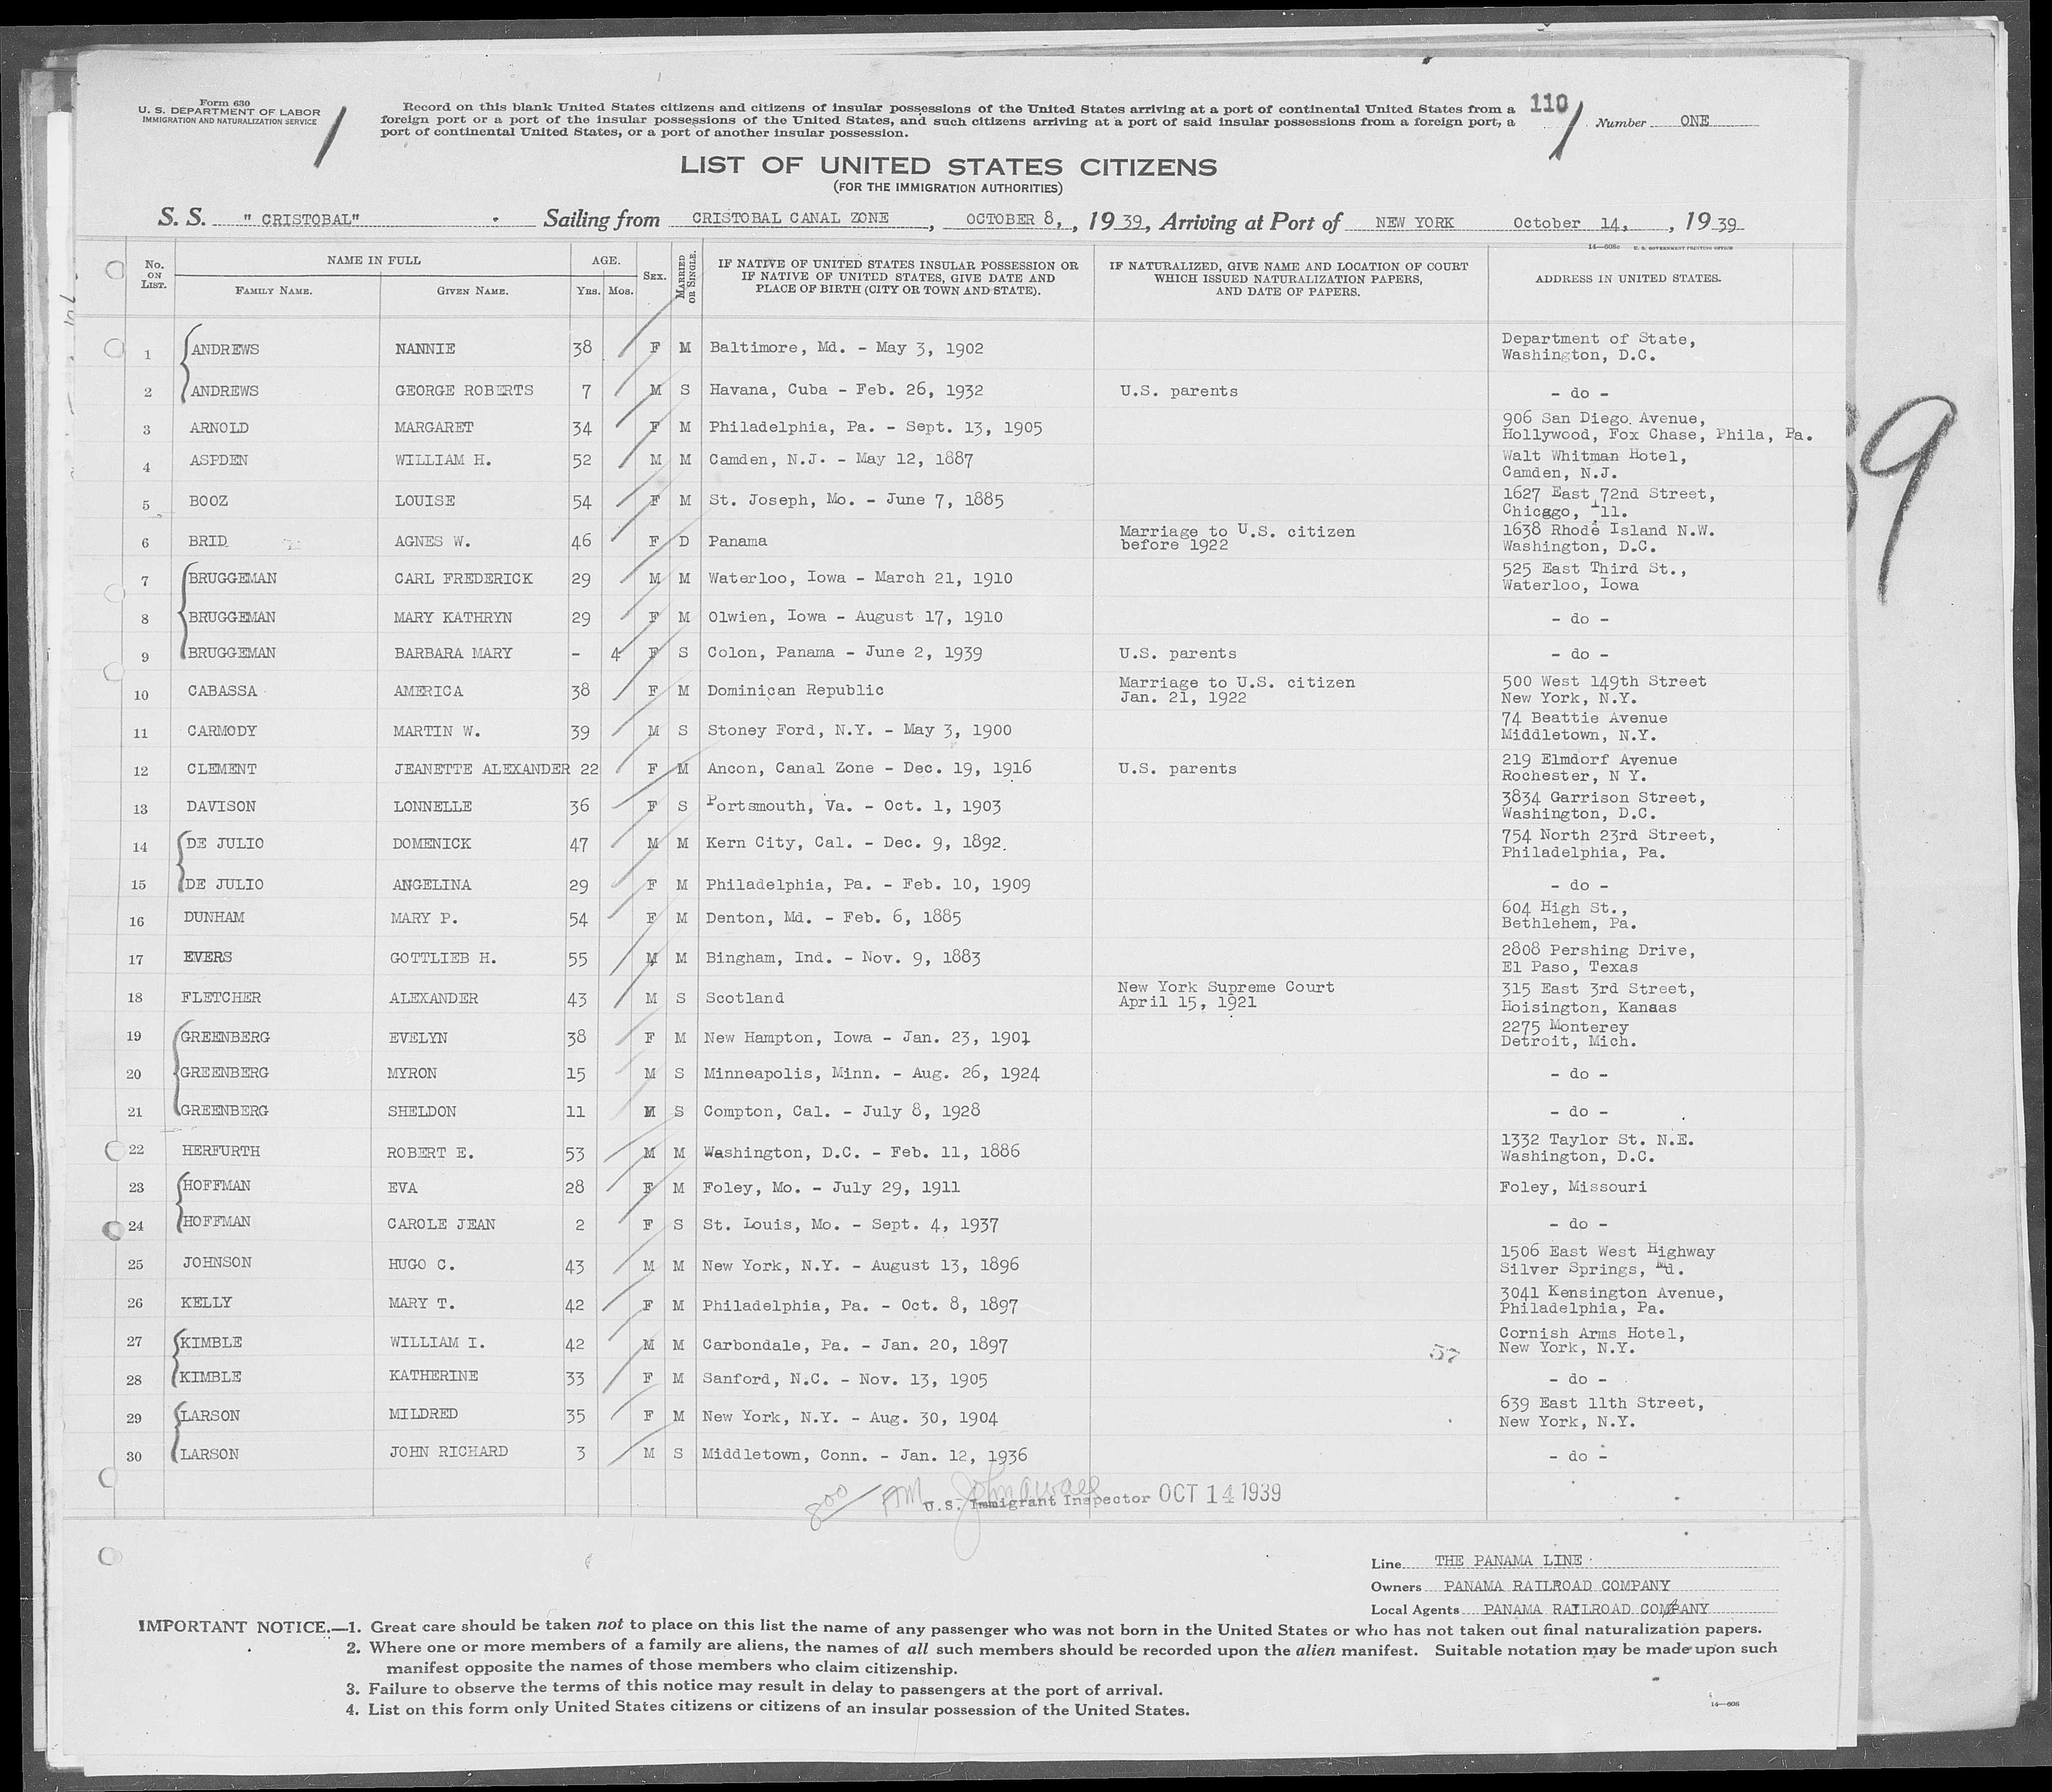 Form 630
U. S. DEPARTMENT OF LABOR
IMMIGRATION AND NATURALIZATION SERVICE
Record on this blank United States citizens and citizens of insular possessions of the United States arriving at a port of continental United States from a
foreign port or a port of the insular possessions of the United States, and such citizens arriving at a port of said insular possessions from a foreign port, a
port of continental United States, or a port of another insular possession.
110
Number ONE
LIST OF UNITED STATES CITIZENS
(FOR THE IMMIGRATION AUTHORITIES)
S. S. " CRISTOBAL" Sailing from CRISTOBAL CANAL ZONE, OCTOBER 8, , 19 39, Arriving at Port of NEW YORK October 14, , 19 39
14—608c U. S. GOVERNMENT PRINTING OFFICE
No. ON LIST. NAME IN FULL FAMILY NAME. GIVEN NAME. AGE. YRS. MOS. SEX. MARRIED OR SINGLE. IF NATIVE OF UNITED STATES INSULAR POSSESSION OR IF NATIVE OF UNITED STATES, GIVE DATE AND PLACE OF BIRTH (CITY OR TOWN AND STATE). IF NATURALIZED, GIVE NAME AND LOCATION OF COURT WHICH ISSUED NATURALIZATION PAPERS, AND DATE OF PAPERS. ADDRESS IN UNITED STATES.
1 ANDREWS NANNIE 38 F M Baltimore, Md. - May 3, 1902 Department of State, Washington, D.C.
2 ANDREWS GEORGE ROBERTS 7 M S Havana, Cuba - Feb. 26, 1932 U.S. parents - do -
3 ARNOLD MARGARET 34 F M Philadelphia, Pa. - Sept. 13, 1905 906 San Diego Avenue, Hollywood, Fox Chase, Phila, Pa.
4 ASPDEN WILLIAM H. 52 M M Camden, N.J. - May 12, 1887 Walt Whitman Hotel, Camden, N.J.
5 BOOZ LOUISE 54 F M St. Joseph, Mo. - June 7, 1885 1627 East 72nd Street, Chicago, Ill.
6 BRID AGNES W. 46 F D Panama Marriage to U.S. citizen before 1922 1638 Rhode Island N.W. Washington, D.C.
7 BRUGGEMAN CARL FREDERICK 29 M M Waterloo, Iowa - March 21, 1910 525 East Third St., Waterloo, Iowa
8 BRUGGEMAN MARY KATHRYN 29 F M Olwien, Iowa - August 17, 1910 - do -
9 BRUGGEMAN BARBARA MARY - 4 F S Colon, Panama - June 2, 1939 U.S. parents - do -
10 CABASSA AMERICA 38 F M Dominican Republic Marriage to U.S. citizen Jan. 21, 1922 500 West 149th Street New York, N.Y.
11 CARMODY MARTIN W. 39 M S Stoney Ford, N.Y. - May 3, 1900 74 Beattie Avenue Middletown, N.Y.
12 CLEMENT JEANETTE ALEXANDER 22 F M Ancon, Canal Zone - Dec. 19, 1916 U.S. parents 219 Elmdorf Avenue Rochester, N Y.
13 DAVISON LONNELLE 36 F S Portsmouth, Va. - Oct. 1, 1903 3834 Garrison Street, Washington, D.C.
14 DE JULIO DOMENICK 47 M M Kern City, Cal. - Dec. 9, 1892. 754 North 23rd Street, Philadelphia, Pa.
15 DE JULIO ANGELINA 29 F M Philadelphia, Pa. - Feb. 10, 1909 - do -
16 DUNHAM MARY P. 54 F M Denton, Md. - Feb. 6, 1885 604 High St., Bethlehem, Pa.
17 EVERS GOTTLIEB H. 55 M M Bingham, Ind. - Nov. 9, 1883 2808 Pershing Drive, El Paso, Texas
18 FLETCHER ALEXANDER 43 M S Scotland New York Supreme Court April 15, 1921 315 East 3rd Street, Hoisington, Kanaas
19 GREENBERG EVELYN 38 F M New Hampton, Iowa - Jan. 23, 1901 2275 Monterey Detroit, Mich.
20 GREENBERG MYRON 15 M S Minneapolis, Minn. - Aug. 26, 1924 - do -
21 GREENBERG SHELDON 11 M S Compton, Cal. - July 8, 1928 - do -
22 HERFURTH ROBERT E. 53 M M Washington, D.C. - Feb. 11, 1886 1332 Taylor St. N.E. Washington, D.C.
23 HOFFMAN EVA 28 F M Foley, Mo. - July 29, 1911 Foley, Missouri
24 HOFFMAN CAROLE JEAN 2 F S St. Louis, Mo. - Sept. 4, 1937 - do -
25 JOHNSON HUGO C. 43 M M New York, N.Y. - August 13, 1896 1506 East West Highway Silver Springs, Md.
26 KELLY MARY T. 42 F M Philadelphia, Pa. - Oct. 8, 1897 3041 Kensington Avenue, Philadelphia, Pa.
27 KIMBLE WILLIAM I. 42 M M Carbondale, Pa. - Jan. 20, 1897 57 Cornish Arms Hotel, New York, N.Y.
28 KIMBLE KATHERINE 33 F M Sanford, N.C. - Nov. 13, 1905 - do -
29 LARSON MILDRED 35 F M New York, N.Y. - Aug. 30, 1904 639 East 11th Street, New York, N.Y.
30 LARSON JOHN RICHARD 3 M S Middletown, Conn. - Jan. 12, 1936 - do -
800 AM
U.S. Immigrant Inspector OCT 14 1939
Line THE PANAMA LINE
Owners PANAMA RAILROAD COMPANY
Local Agents PANAMA RAILROAD COMPANY
IMPORTANT NOTICE.—1. Great care should be taken not to place on this list the name of any passenger who was not born in the United States or who has not taken out final naturalization papers.
2. Where one or more members of a family are aliens, the names of all such members should be recorded upon the alien manifest. Suitable notation may be made upon such
manifest opposite the names of those members who claim citizenship.
3. Failure to observe the terms of this notice may result in delay to passengers at the port of arrival.
4. List on this form only United States citizens or citizens of an insular possession of the United States.
14—608